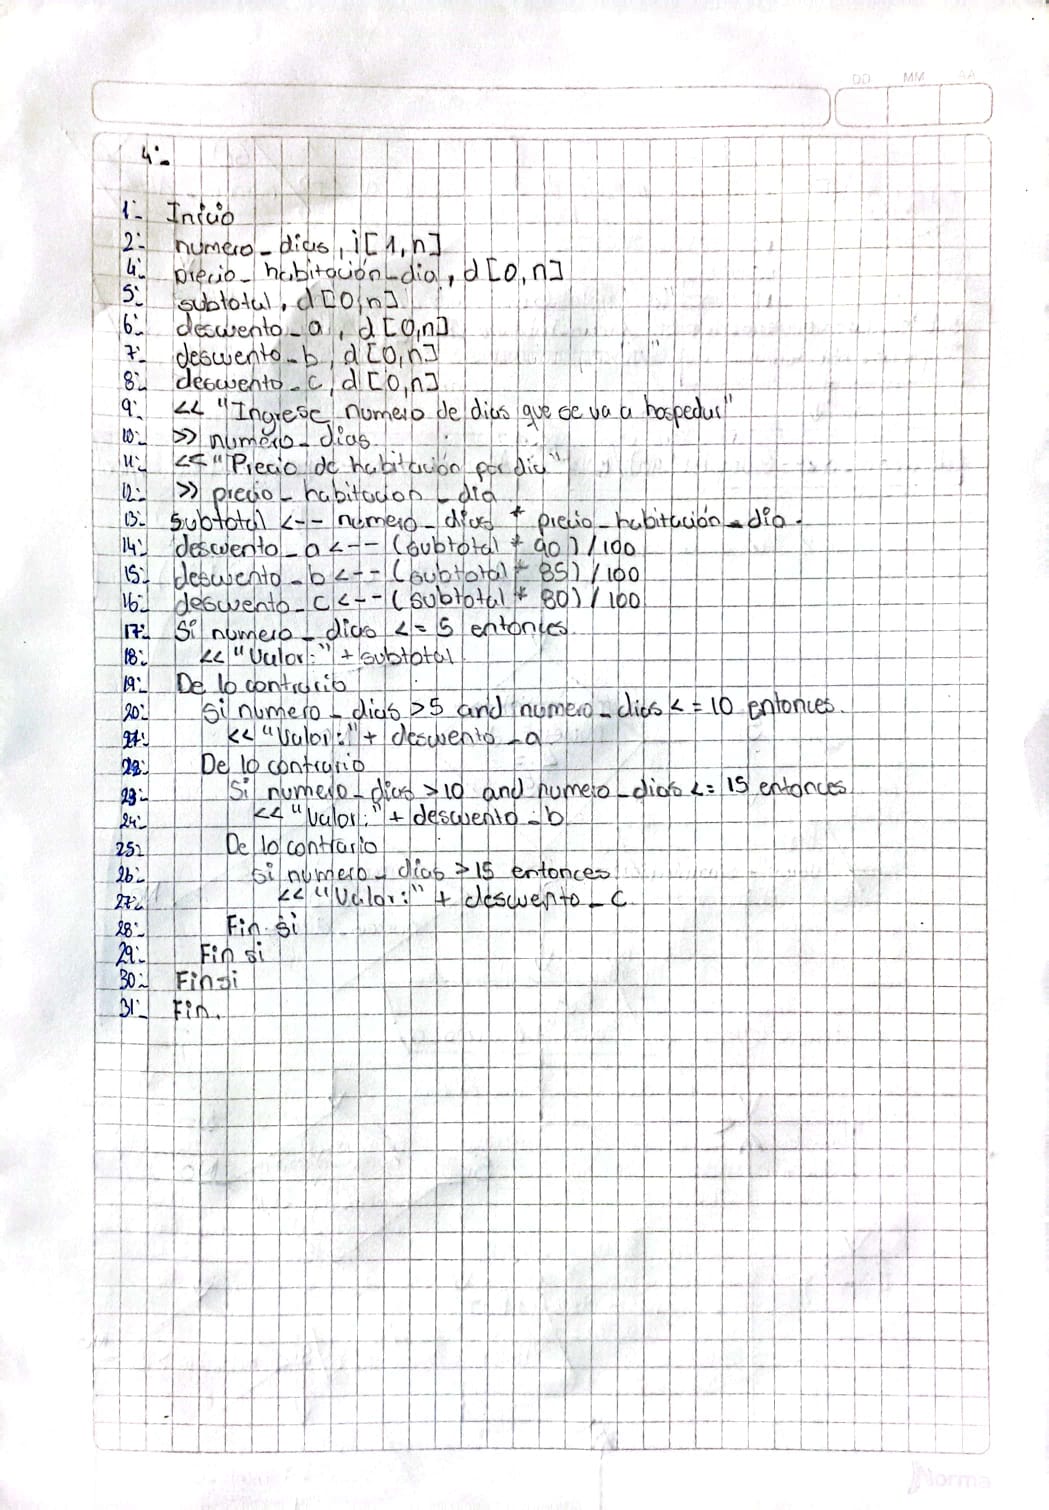 DD MM AA
4:-
1:- Inicio
2:- numero_dias, i[1,n]
4:- precio_habitación_dia, d[0,n]
5:- subtotal, d[0,n]
6:- descuento_a, d[0,n]
7:- descuento_b, d[0,n]
8:- descuento_c, d[0,n]
9:- << "Ingrese numero de dias que se va a hospedar"
10:- >> numero_dias
11:- << "Precio de habitación por dia"
12:- >> precio_habitacion_dia
13:- subtotal <-- numero_dias * precio_habitación_dia.
14:- descuento_a <-- (subtotal * 90) / 100
15:- descuento_b <-- (subtotal * 85) / 100
16:- descuento_c <-- (subtotal * 80) / 100
17:- Si numero_dias <= 5 entonces
18:- << "Valor:" + subtotal
19:- De lo contrario
20:- Si numero_dias >5 and numero_dias <= 10 entonces.
21:- << "Valor:" + descuento_a
22:- De lo contrario
23:- Si numero_dias >10 and numero_dias <= 15 entonces
24:- << "Valor:" + descuento_b
25:- De lo contrario
26:- Si numero_dias >15 entonces
27:- << "Valor:" + descuento_c
28:- Fin si
29:- Fin si
30:- Fin si
31:- Fin.
Norma